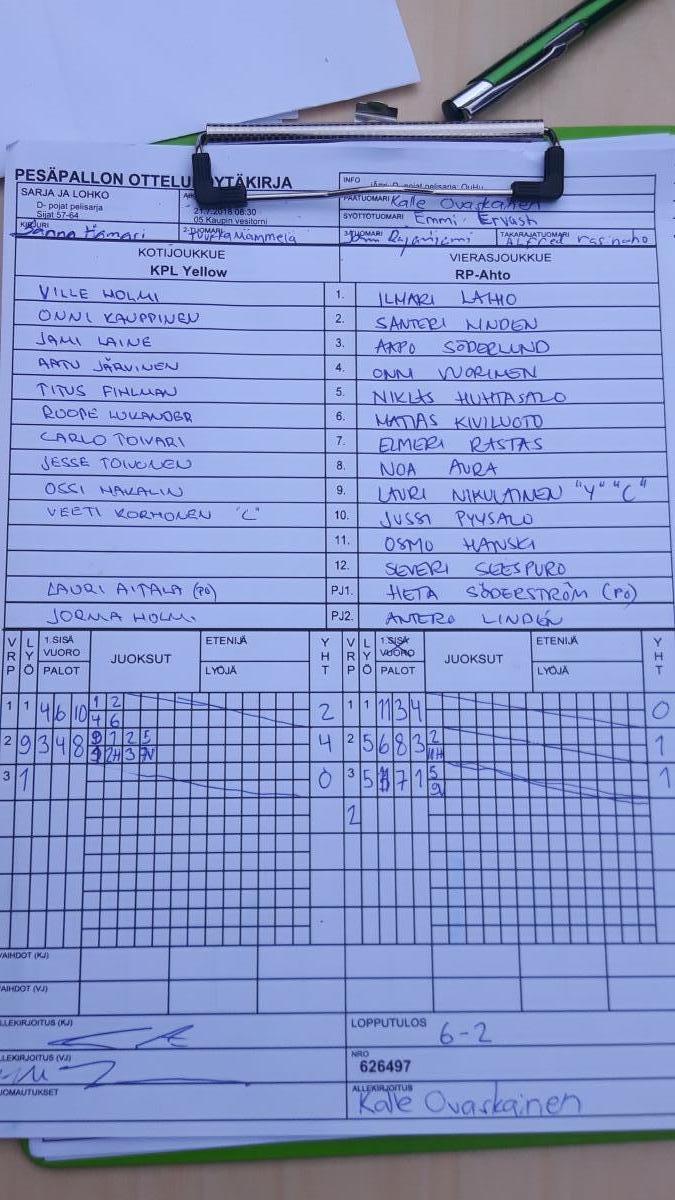 PESÄPALLON OTTELU YTÄKIRJA
INFO
SARJA JA LOHKO
D- pojat pelisarja
Sijat 57-64
21.7.2018 08:30
05 Kaupin vesitorni
PÄÄTUOMARI Kalle Ovaskainen
SYÖTTÖTUOMARI Emmi Ervasti
KIRJURI Sanna Hämäri
2-TUOMARI Tuukka Mämmelä
3-TUOMARI
TAKARAJATUOMARI Alfred
KOTIJOUKKUE
KPL Yellow
VIERASJOUKKUE
RP-Ahto
VILLE HOLMI 1. ILMARI LAHIO
ONNI KAUPPINEN 2. SANTERI LINDEN
JAMI LAINE 3. AAPO SÖDERLUND
AATU JÄRVINEN 4. ONNI VUORINEN
TITUS FIHLMAN 5. NIKLAS HUHTASALO
ROOPE LUKANDER 6. MATIAS KIVILUOTO
CARLO TOIVARI 7. ELMERI RASTAS
JESSE TOIVONEN 8. NOA AURA
OSSI 9. LAURI NIKULAINEN "Y" "C"
VEETI KORHONEN "C" 10. JUSSI PYYSALO
11. OSMO HANSKI
12. SEVERI SEESPURO
LAURI AITALA (PO) PJ1. HETA SÖDERSTRÖM (PO)
JORMA HOLMI PJ2. ANTERO LINDÉN
VRP LYÖ 1.SISÄ VUORO PALOT JUOKSUT ETENIJÄ LYÖJÄ YHT VRP LYÖ 1.SISÄ VUORO PALOT JUOKSUT ETENIJÄ LYÖJÄ YHT
1 1 4 6 10 1 2 2 1 1 11 3 4 0
4 6
2 9 3 4 8 9 1 2 5 4 2 5 6 8 3 2 1
3 1 0 3 5 7 1 5 1
9
2
VAIHDOT (KJ)
VAIHDOT (VJ)
ALLEKIRJOITUS (KJ)
LOPPUTULOS 6-2
ALLEKIRJOITUS (VJ)
NRO
626497
HUOMAUTUKSET
ALLEKIRJOITUS
Kalle Ovaskainen